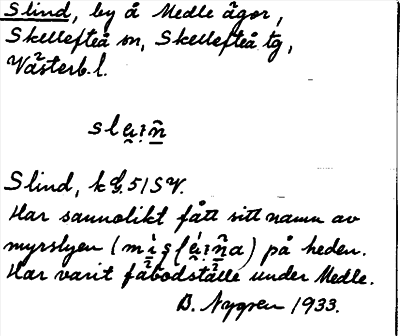 Slind, by å Medle ägor,
Skellefteå sn, Skellefteå tg,
Västerb. l.
Slind, k bl. 51 SV.
Har sannolikt fått sitt namn av
myrslyen på heden.
Har varit fäbodställe under Medle.
B. Nygren 1933.